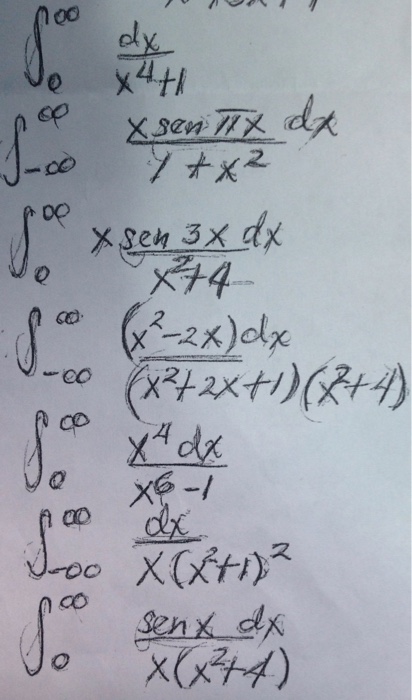 ∫₀^∞ dx / (x⁴+1)
∫₋∞^∞ x sen πx dx / (1 + x²)
∫₀^∞ x sen 3x dx / (x²+4)
∫₋∞^∞ (x²-2x)dx / (x²+2x+1)(x²+4)
∫₀^∞ x⁴ dx / (x⁶-1)
∫₋∞^∞ dx / x(x²+1)²
∫₀^∞ sen x dx / x(x²+4)